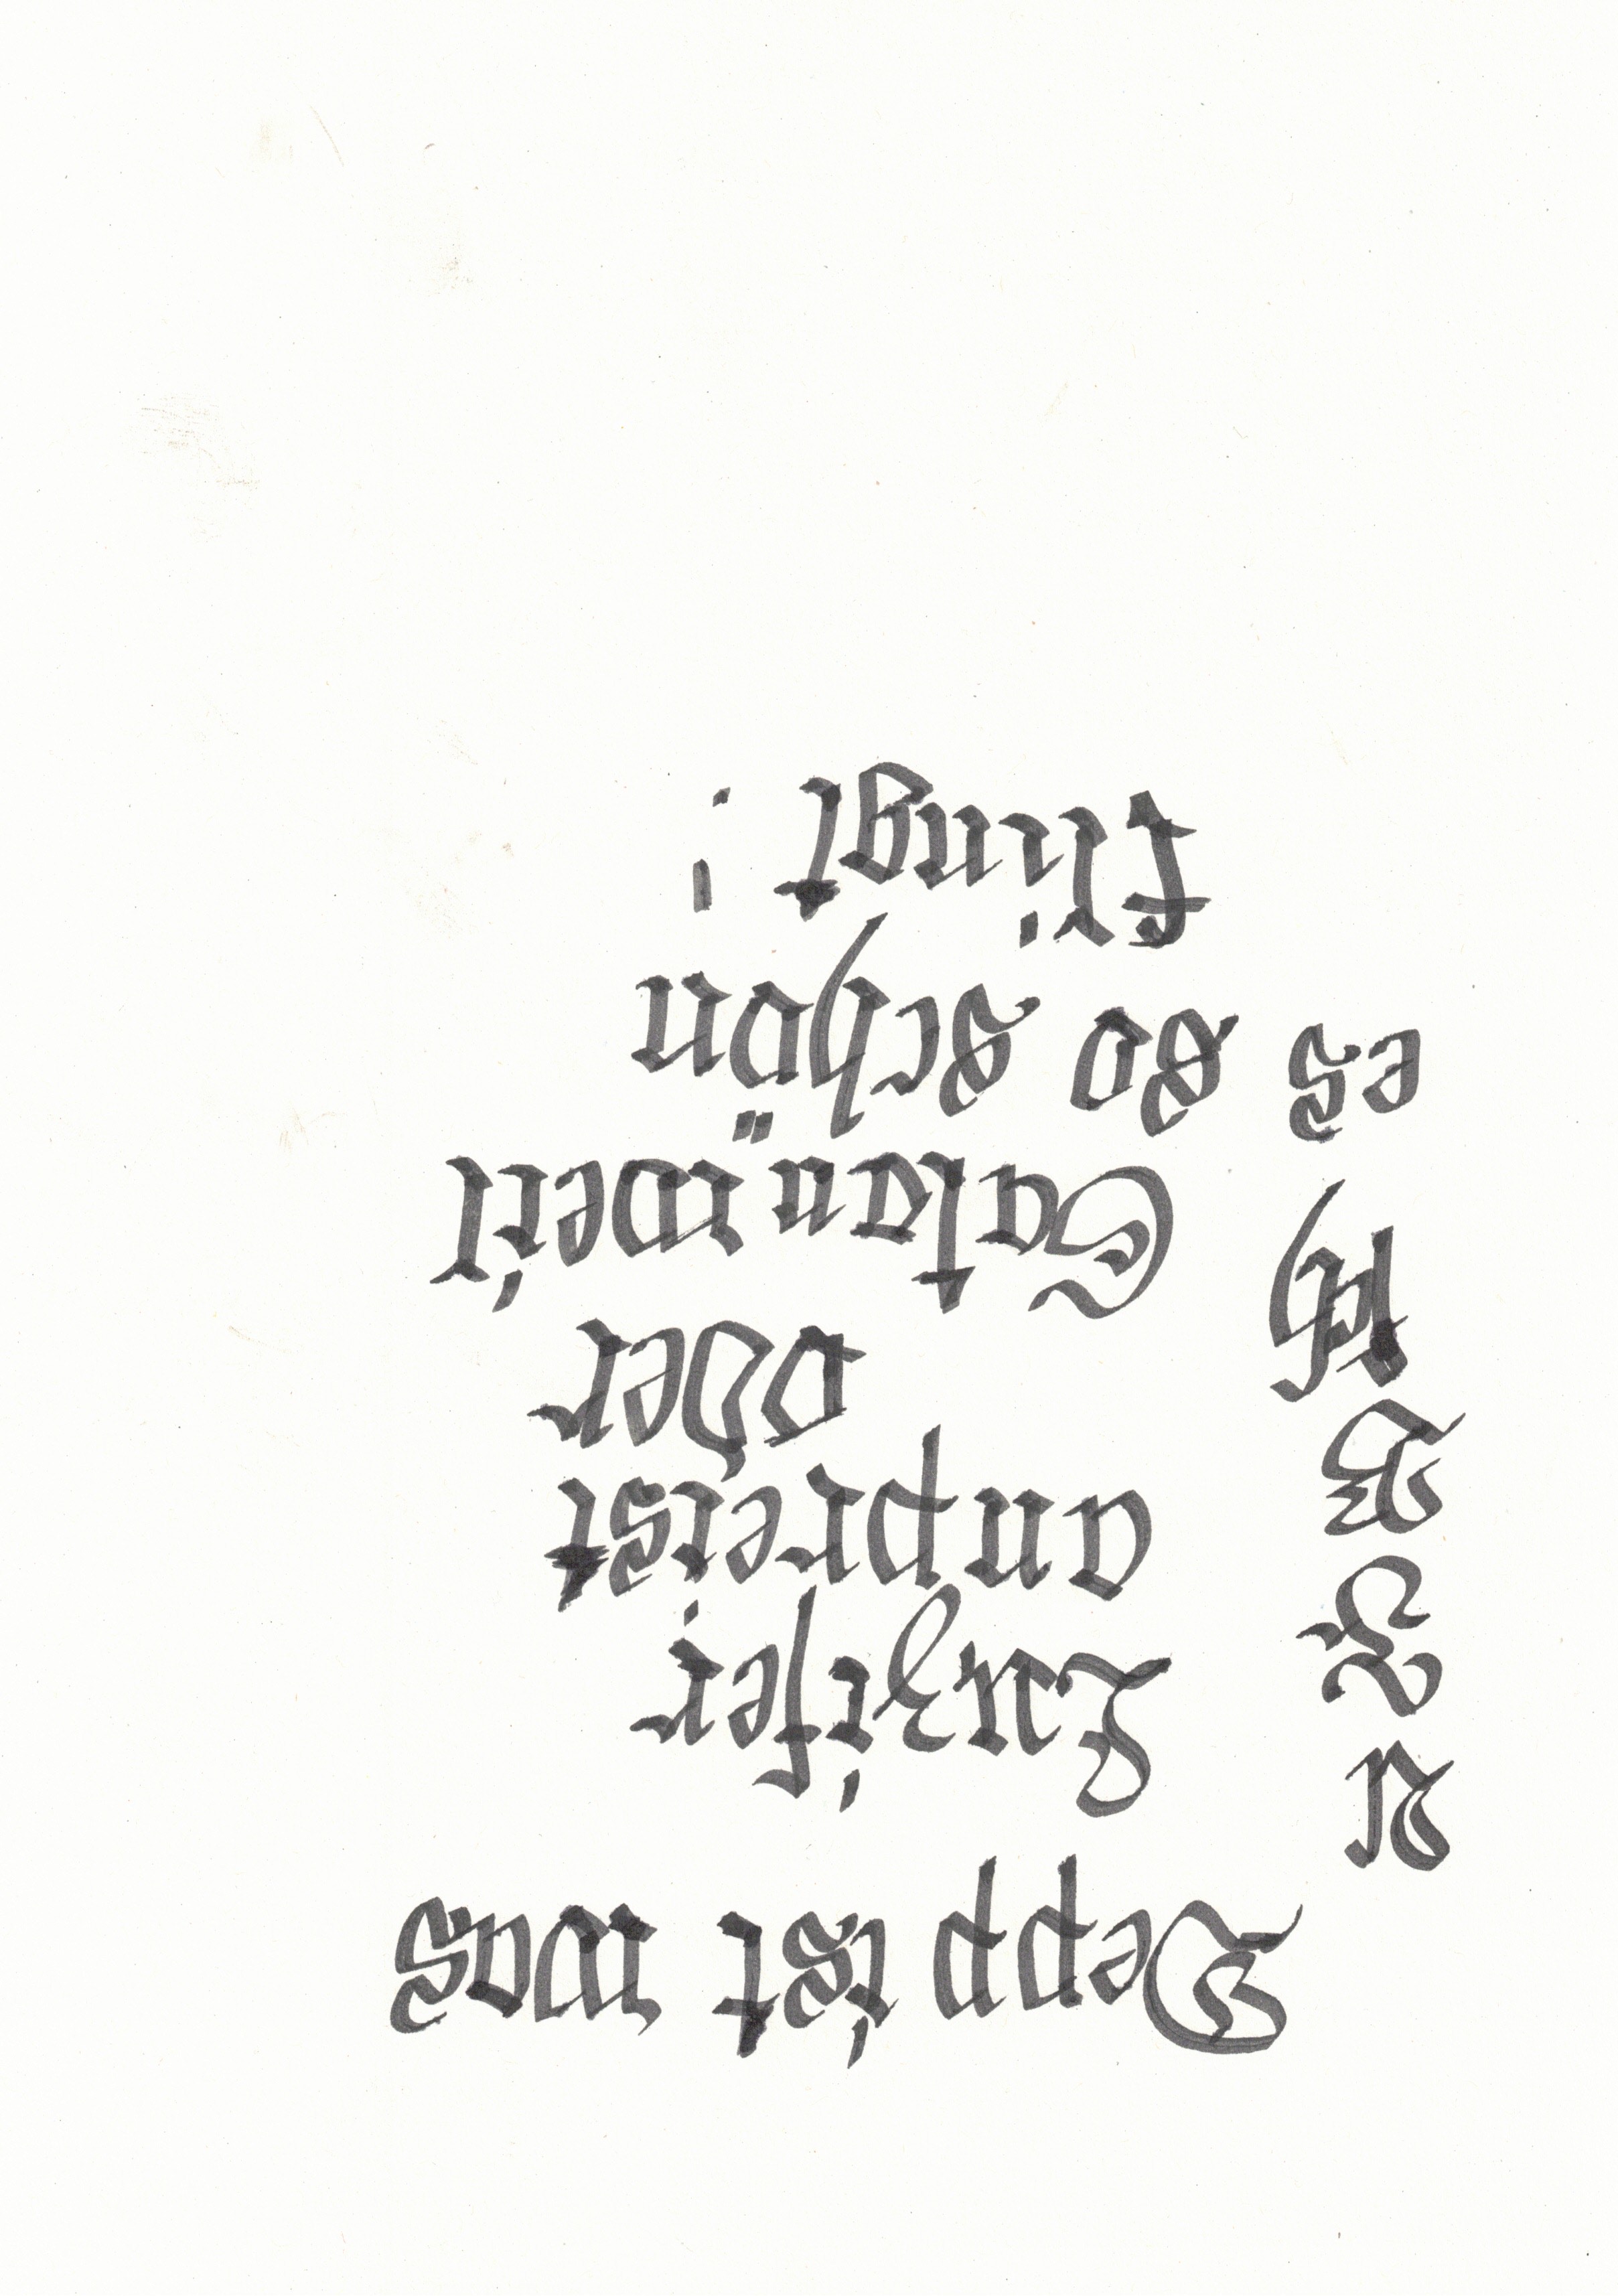 Depp ist was
Luzifer
anpreist
oder
Satan weil
es so schön
klingt !